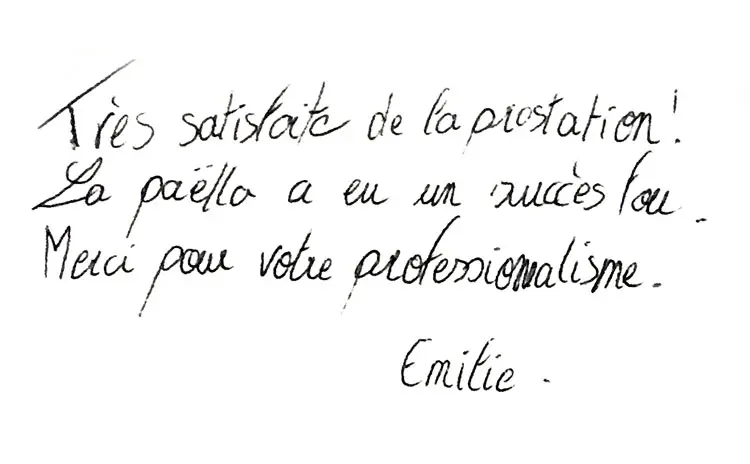 Très satisfaite de la prestation !
La paëlla a eu un succès fou.
Merci pour votre professionnalisme.
Emilie.